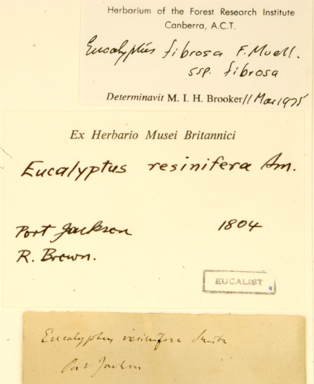 Herbarium of the Forest Research Institute
Canberra, A.C.T.
Eucalyptus fibrosa F. Muell.
ssp. fibrosa
Determinavit M. I. H. Brooker 11 Mar 1975
Ex Herbario Musei Britannici
Eucalyptus resinifera Sm.
Port Jackson 1804
R. Brown.
EUCALIST
Eucalyptus resinifera Smith
Port Jackson